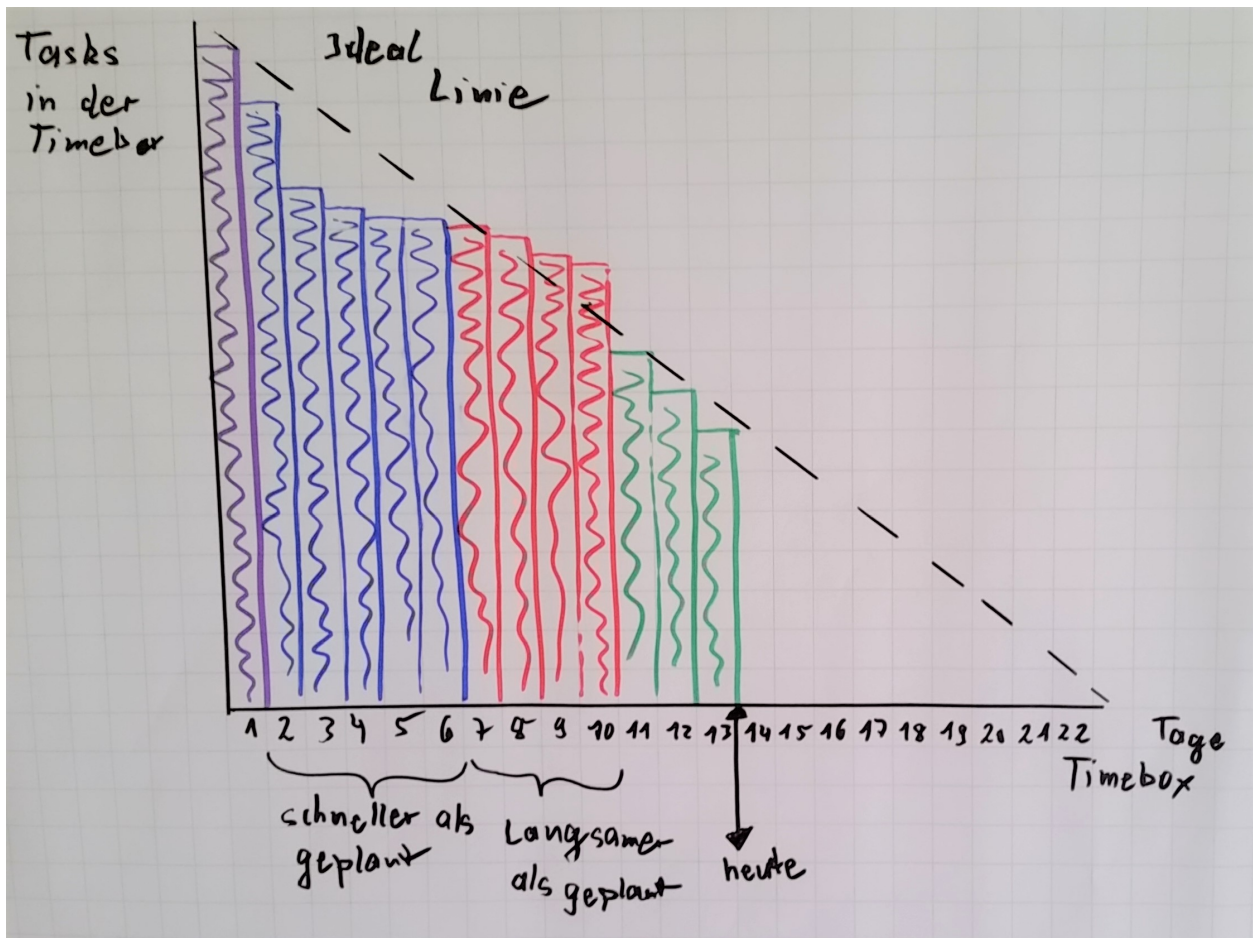 Tasks
in der
Timebox
Ideal
Linie
1 2 3 4 5 6 7 8 9 10 11 12 13 14 15 16 17 18 19 20 21 22
Tage
Timebox
schneller als
geplant
Langsamer
als geplant
heute